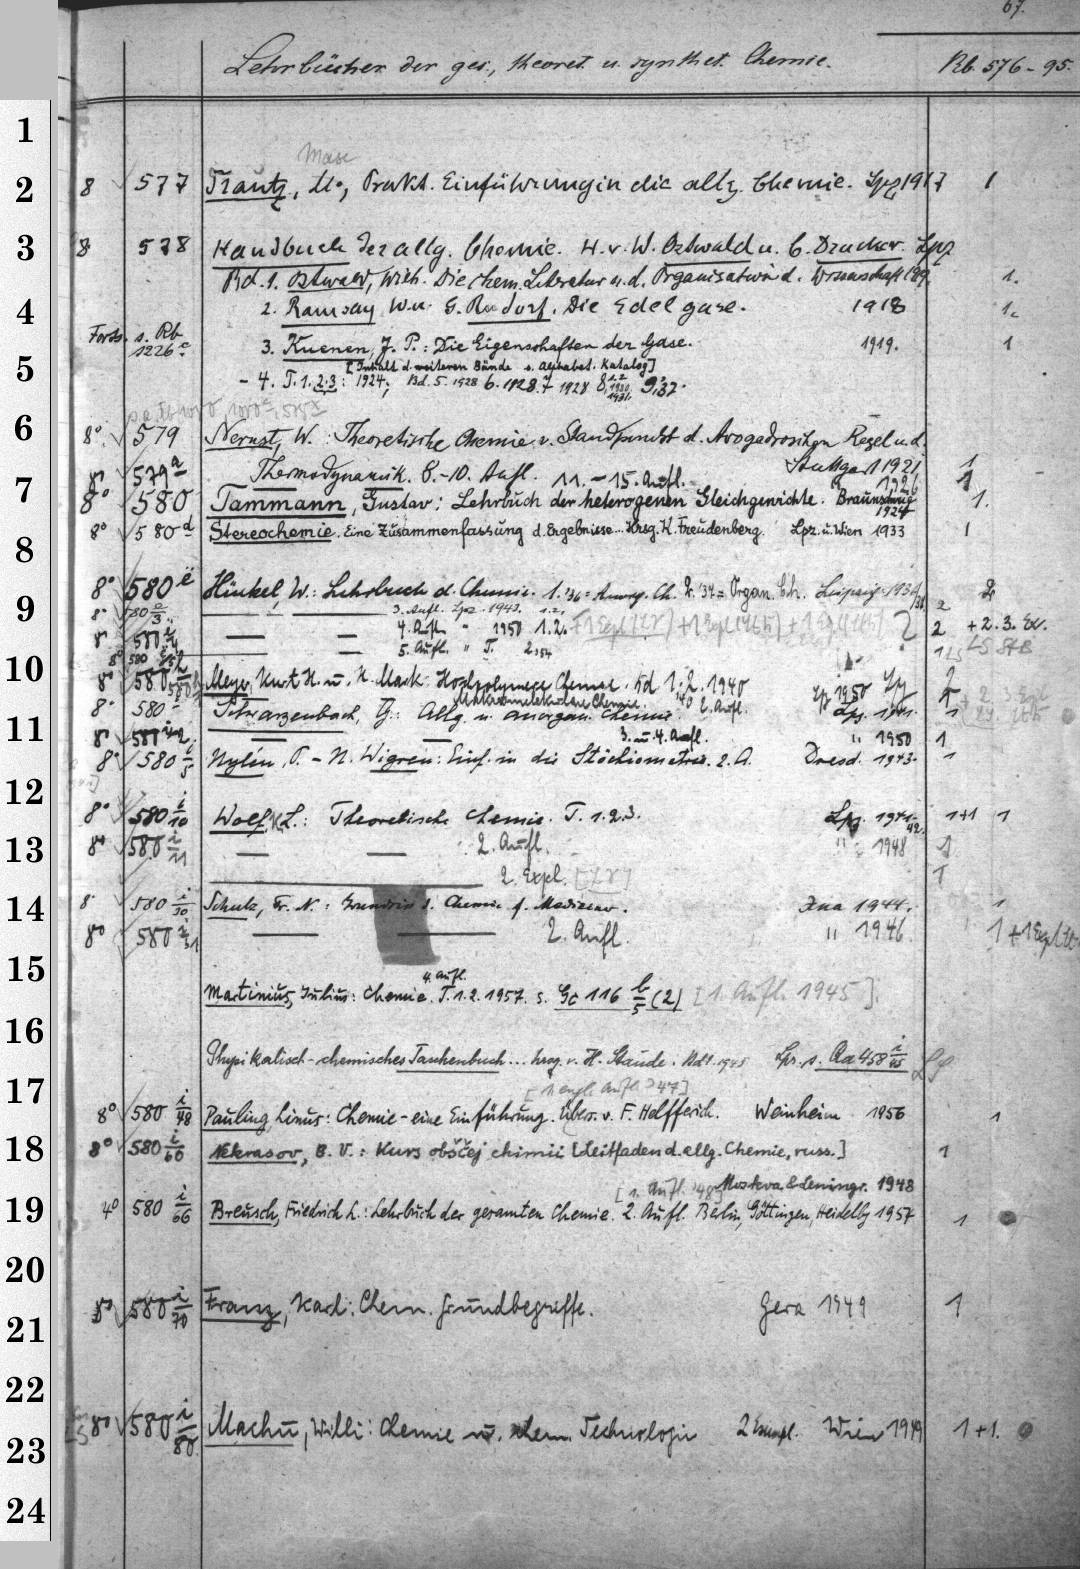 67.
Lehrbücher der ges., theoret. u. synthet. Chemie. Rb. 576-95.
1
2 8 577 Trautz, M., Prakt. Einführung in die allg. Chemie. Lpz 1917 1
3 8 578 Handbuch der allg. Chemie. H. v. W. Ostwald u. C. Drucker. Lpz
Bd. 1. Ostwald, Wilh. Die chem. Literatur u. d. Organisation d. Wissenschaft 1919. 1.
4 2. Ramsay W. u. G. Rudorf. Die Edelgase. 1918 1.
Forts. s. Rb 1226 c 3. Kuenen, J. P.: Die Eigenschaften der Gase. 1919. 1
5 [Inhalt d. weiteren Bände s. Alphabet. Katalog]
- 4. T. 1. 2.3: 1924; Bd. 5. 1928 6. 1928. 7 1928 8, 9,37.
6 8°. 579 Nernst, W.: Theoretische Chemie v. Standpunkt d. Avogadroschen Regel u. d.
8° 579 a Thermodynamik. 8.-10. Aufl. Stuttgart 1921 1
11.-15. Aufl. 1926 1
7 8° 580 Tammann, Gustav: Lehrbuch der heterogenen Gleichgewichte. Braunschweig 1924 1.
8° 580 d Stereochemie. Eine Zusammenfassung d. Ergebnisse... Hrsg. K. Freudenberg. Lpz. u. Wien 1933 1
8
8° 580 e Hückel, W.: Lehrbuch d. Chemie. 1. '36 = Anorg. Ch. 2. '34 = Organ. Ch. Leipzig 1934/36 2
9 8° 580 e/3 — — 3. Aufl. Lpz. 1943. 1.2. 2
8° 580 — — 4. Aufl. " 1950 1.2. 2 + 2. 3. Ex.
8° 580 — 5. Aufl. " T. 2,54
10 8° 580 Meyer, Kurt H. u. H. Mark: Hochpolymere Chemie. Bd 1. 2. 1940
Makromolekulare Chemie. 2. Aufl. Lpz 1950
8° 580 Schwarzenbach, G.: Allg. u. anorgan. Chemie. Lpz. 1941. 1
11 8° 580 — — 3. u. 4. Aufl. " 1950 1
8° 580 i/5 Nylén, P. - N. Wigren: Einf. in die Stöchiometrie. 2. A. Dresd. 1943. 1
12 8° 580 i/10 Wolf, K. L.: Theoretische Chemie. T. 1. 2. 3. Lpz. 1941-42. 1+1 1
13 8° 580 i/11 — — 2. Aufl. " 1948 1
2. Expl. 1
14 8° 580 i/30 Schulz, Fr. N.: Grundriss d. Chemie f. Mediziner. Jena 1944. 1
8° 580 i/31 — — 2. Aufl. " 1946 1 + 1 Expl.
15 4. Aufl.
Martinius, Julius: Chemie. T. 1. 2. 1957. s. Gc 116 b/5 (2) [1. Aufl. 1945].
16 Physikalisch-chemisches Taschenbuch... hrsg. v. H. Staude. Bd 1. 1945 Lpz. s. Qa 458 i/45 LS
17 [1 engl. Aufl. 1947]
8° 580 i/48 Pauling, Linus: Chemie - eine Einführung. Übers. v. F. Helfferich. Weinheim 1956 1
18 8° 580 i/60 Nekrasov, B. V.: Kurs obščej chimii [Leitfaden d. allg. Chemie, russ.] 1
[1. Aufl. 48] Moskva & Leningr. 1948
19 4° 580 i/66 Breusch, Friedrich L.: Lehrbuch der gesamten Chemie. 2. Aufl. Berlin, Göttingen, Heidelbg 1957 1
20
8° 580 i/70 Franz, Karl: Chem. Grundbegriffe. Gera 1949 1
21
22
8° 580 i/80 Machu, Willi: Chemie u. chem. Technologie 2 Exempl. Wien 1949 1+1.
23
24